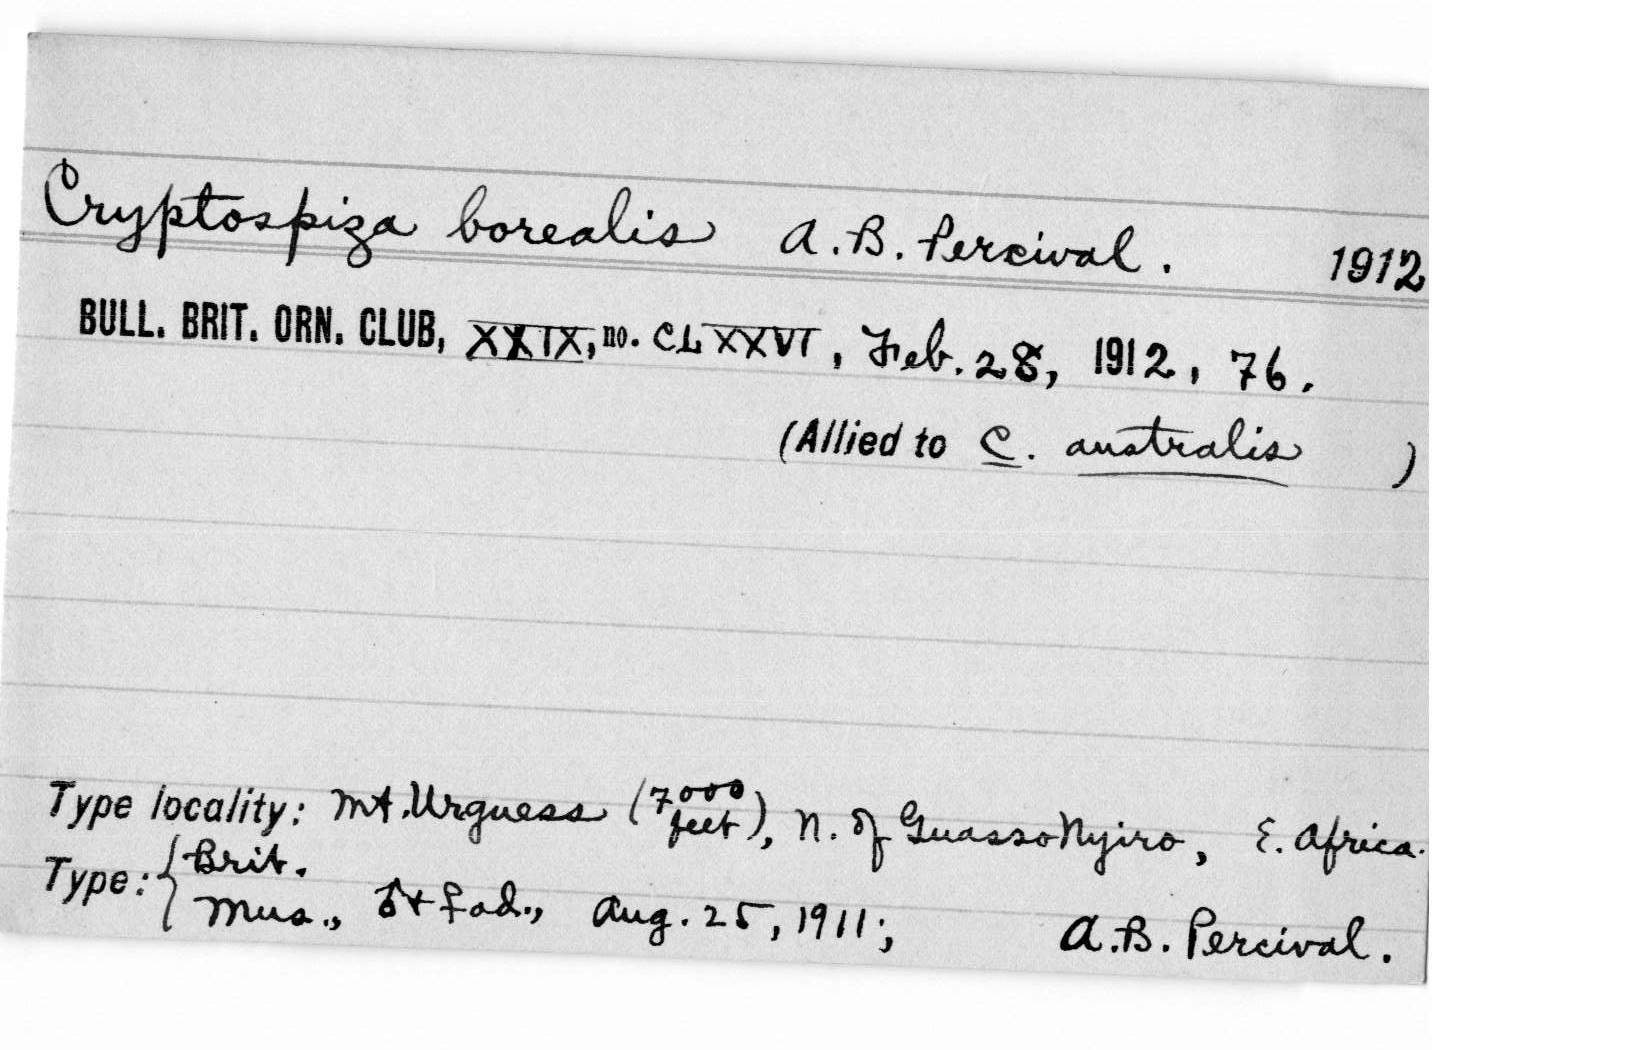 Cryptospiza borealis A.B. Percival. 1912
BULL. BRIT. ORN. CLUB, XXIX, no. CLXXVI, Feb. 28, 1912, 76.
(Allied to C. australis )
Type locality: Mt. Urguess (7000 feet), N. of Guasso Nyiro, E. Africa.
Type: { Brit.
Mus., ♂ + ♀ ad., Aug. 25, 1911; A.B. Percival.